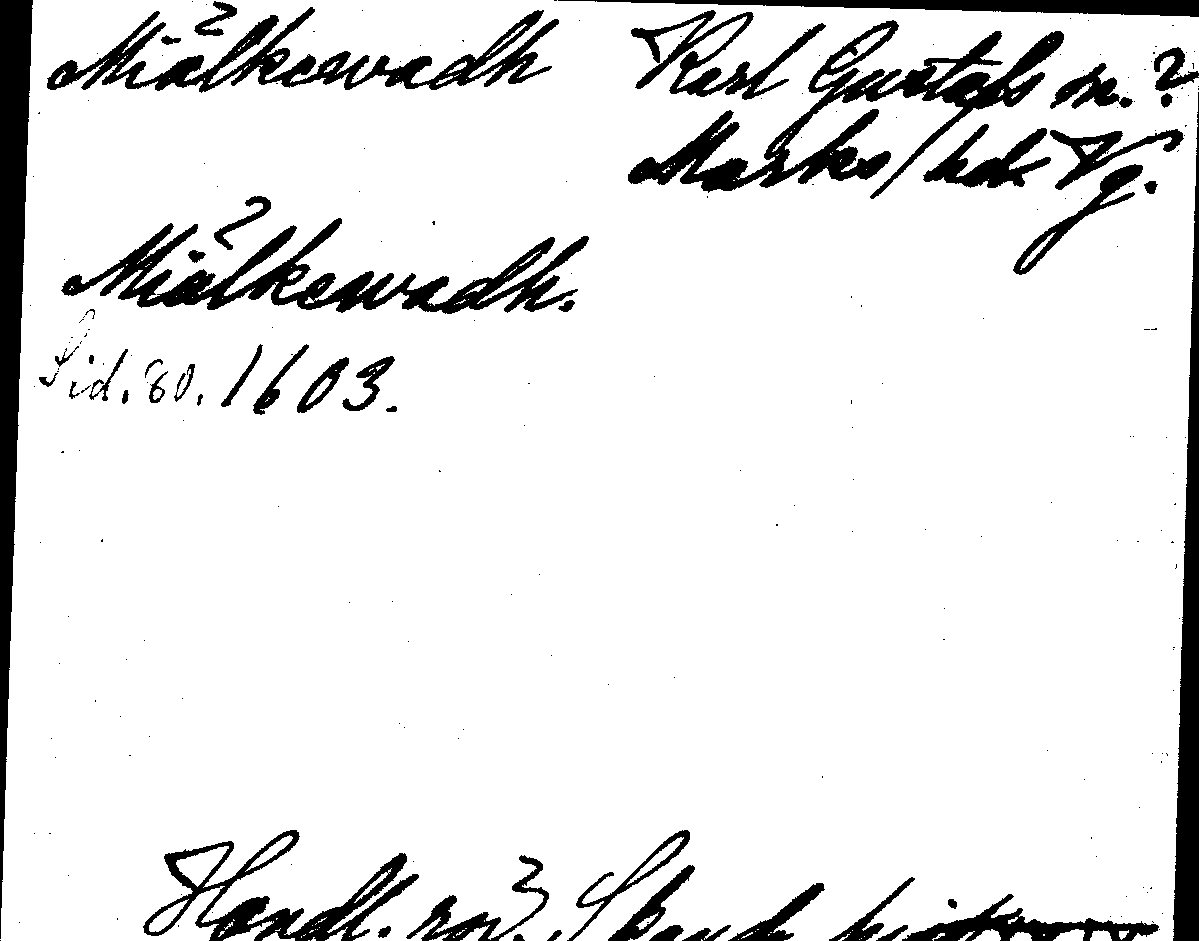 Miälkewadh Karl Gustafs sn.?
Marks / hd. Vg.
Miälkewadh.
Sid. 80. 1603.
Handl. rör. Skand.